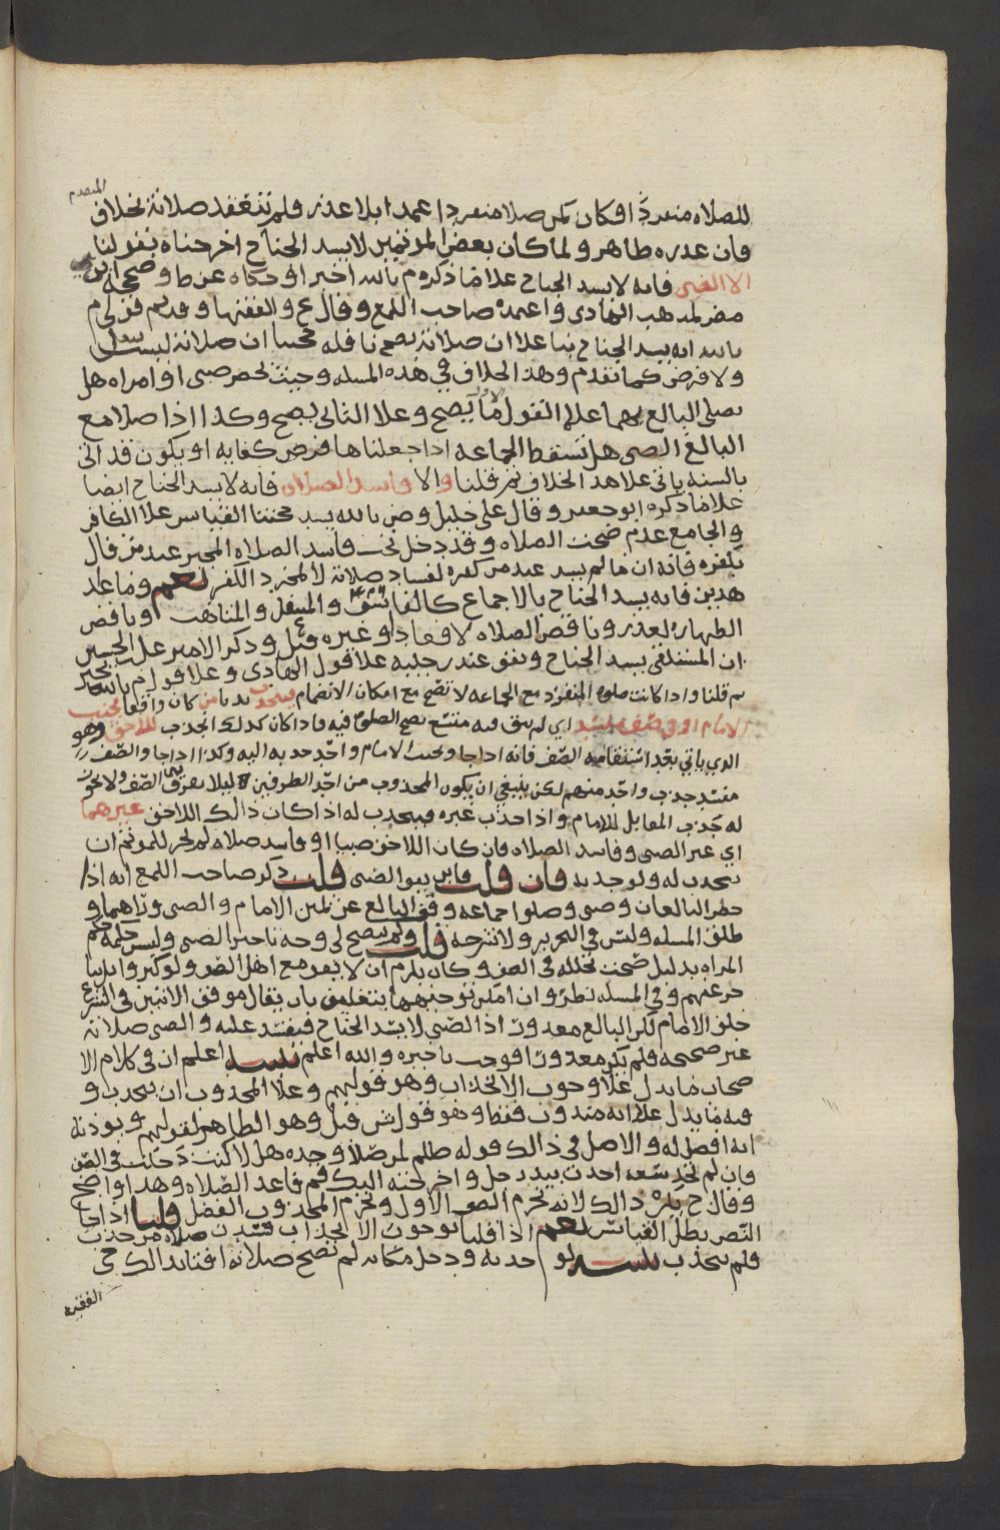 المتقدم
للصلاه منفردا فكان كمن صلا منفردا عمدا بلا عذر فلم تنعقد صلاته بخلاف
فان عذره طاهر ولما كان بعض المؤتمين لا يسد الجناح اخرجناه بقولنا
الا الصبي فانه لا يسد الجناح علا ما ذكره م بالله اخيرا وحكاه عن ط وصححه ابن
مضر لمذهب الهادي واعتمده صاحب اللمع وقال ع والفقها وقديم قولي م
بالله انه يسد الجناح بنا علا ان صلاته تصح نافله محتسا ان صلاته ليست بنفل
ولا فرض كما تقدم وهذا الخلاف في هذه المسله وحيث لم يحضر صبي او امراه هل
يصلي البالغ بهما علا القول الاول ما يصح وعلا الثاني يصح وكذا اذا صلا مع
البالغ الصبي هل تسقط الجماعه اذا جعلناها فرض كفايه او يكون قد اتى
بالسنه ياتي علا هذا الخلاف ثم قلنا والا فاسد الصلاه فانه لا يسد الجناح ايضا
علا ما ذكره ابو جعفر وقال علي خليل وض بالله يسد محتنا القياس علا الكافر
والجامع عدم صحت الصلاه وقد دخل تحت فاسد الصلاه المجبر عند من قال
بكفره فانه انما لم يسد عند من كفره لفساد صلاته لا لمجرد الكفر نعم وما عدا
هذين فانه يسد الجناح بالاجماع كالفاسق والمتنفل والمتاهب او ناقض
الطهاره لعذر وناقص الصلاه لاقعاد او غيره وذكر الامير علي بن الحسين
ان المستلقي يسد الجناح ويقف عند رجليه علا قول الهادي وعلا قول م بالله بجنبه
ثم قلنا واذا كانت صلوه المنفرد مع الجماعه لا تصح مع امكان الانضمام فينجذب ندبا من كان واقفا بجنب
الامام او في صف منسد اي لم يبق فيه متسع تصح الصلوه فيه فاذا كان كذلك انجذب للاحق وهو
الذي ياتي بعد استقامه الصف فانه اذا جا وبجنب الامام واحد جذبه اليه وكذا اذا جا والصف
منسد جذب واحد منهم لكن ينبغي ان يكون المجذوب من احد الطرفين لئلا يفرق بين الصف ولا يجوز
له جذب المقابل للامام واذا جذب غيره فينجذب له اذا كان ذالك اللاحق غيرهما
اي غير الصبي وفاسد الصلاه فان كان اللاحق صبيا او فاسد صلاه لم يجز للمؤتم ان
ينجذب له ولو جذبه فان قلت فاين يقف الصبي قلت ذكر صاحب اللمع انه اذا
حضر البالغان وصبي وصلوا جماعه وقف البالغ عن يمين الامام والصبي وراهما و
طلق المسله وليس في التحرير ولا شرحه قلت ولم يتضح لي وجه تاخير الصبي وليس حكمه حكم
المراه بدليل صحت تخلله في الصف وكان يلزم ان لا يقف مع اهل الصف ولو كثروا بل
خر عنهم وفي المسله نظر وان امكن توجيهها بتعليق بان يقال موقف الاثنين في الشرع
خلف الامام لكن البالغ معذور اذ الصبي لا يسد الجناح فيفسد عليه والصبي صلاته
غير صحيحه فلم يكن معذورا فوجب تاخيره والله اعلم تنبيه اعلم ان في كلام الا
صحاب ما يدل علا وجوب الانجذاب وهو قولهم وعلا المجذوب ان ينجذب و
فيه ما يدل علا انه مندوب فقط وهو قول ش قيل وهو الظاهر لقولهم ويؤذنه
انه افضل له والاصل في ذالك قوله صلعم لمن صلا وحده هلا كنت دخلت في الصف
فان لم تجد سعه اخذت بيد رجل واخرجته اليك فقم فاعد الصلاه وهذا واضح
وقال ح يكره ذالك لانه تخرم الصف الاول وتحرم المجذوب الفضل قلنا اذا جا
النص بطل القياس نعم اذا قلنا بوجوب الانجذاب فسدت صلاه من جذب
فلم ينجذب تنبيه لو جذبه ودخل مكانه لم تصح صلاته افتا بذالك حي
الفقيه